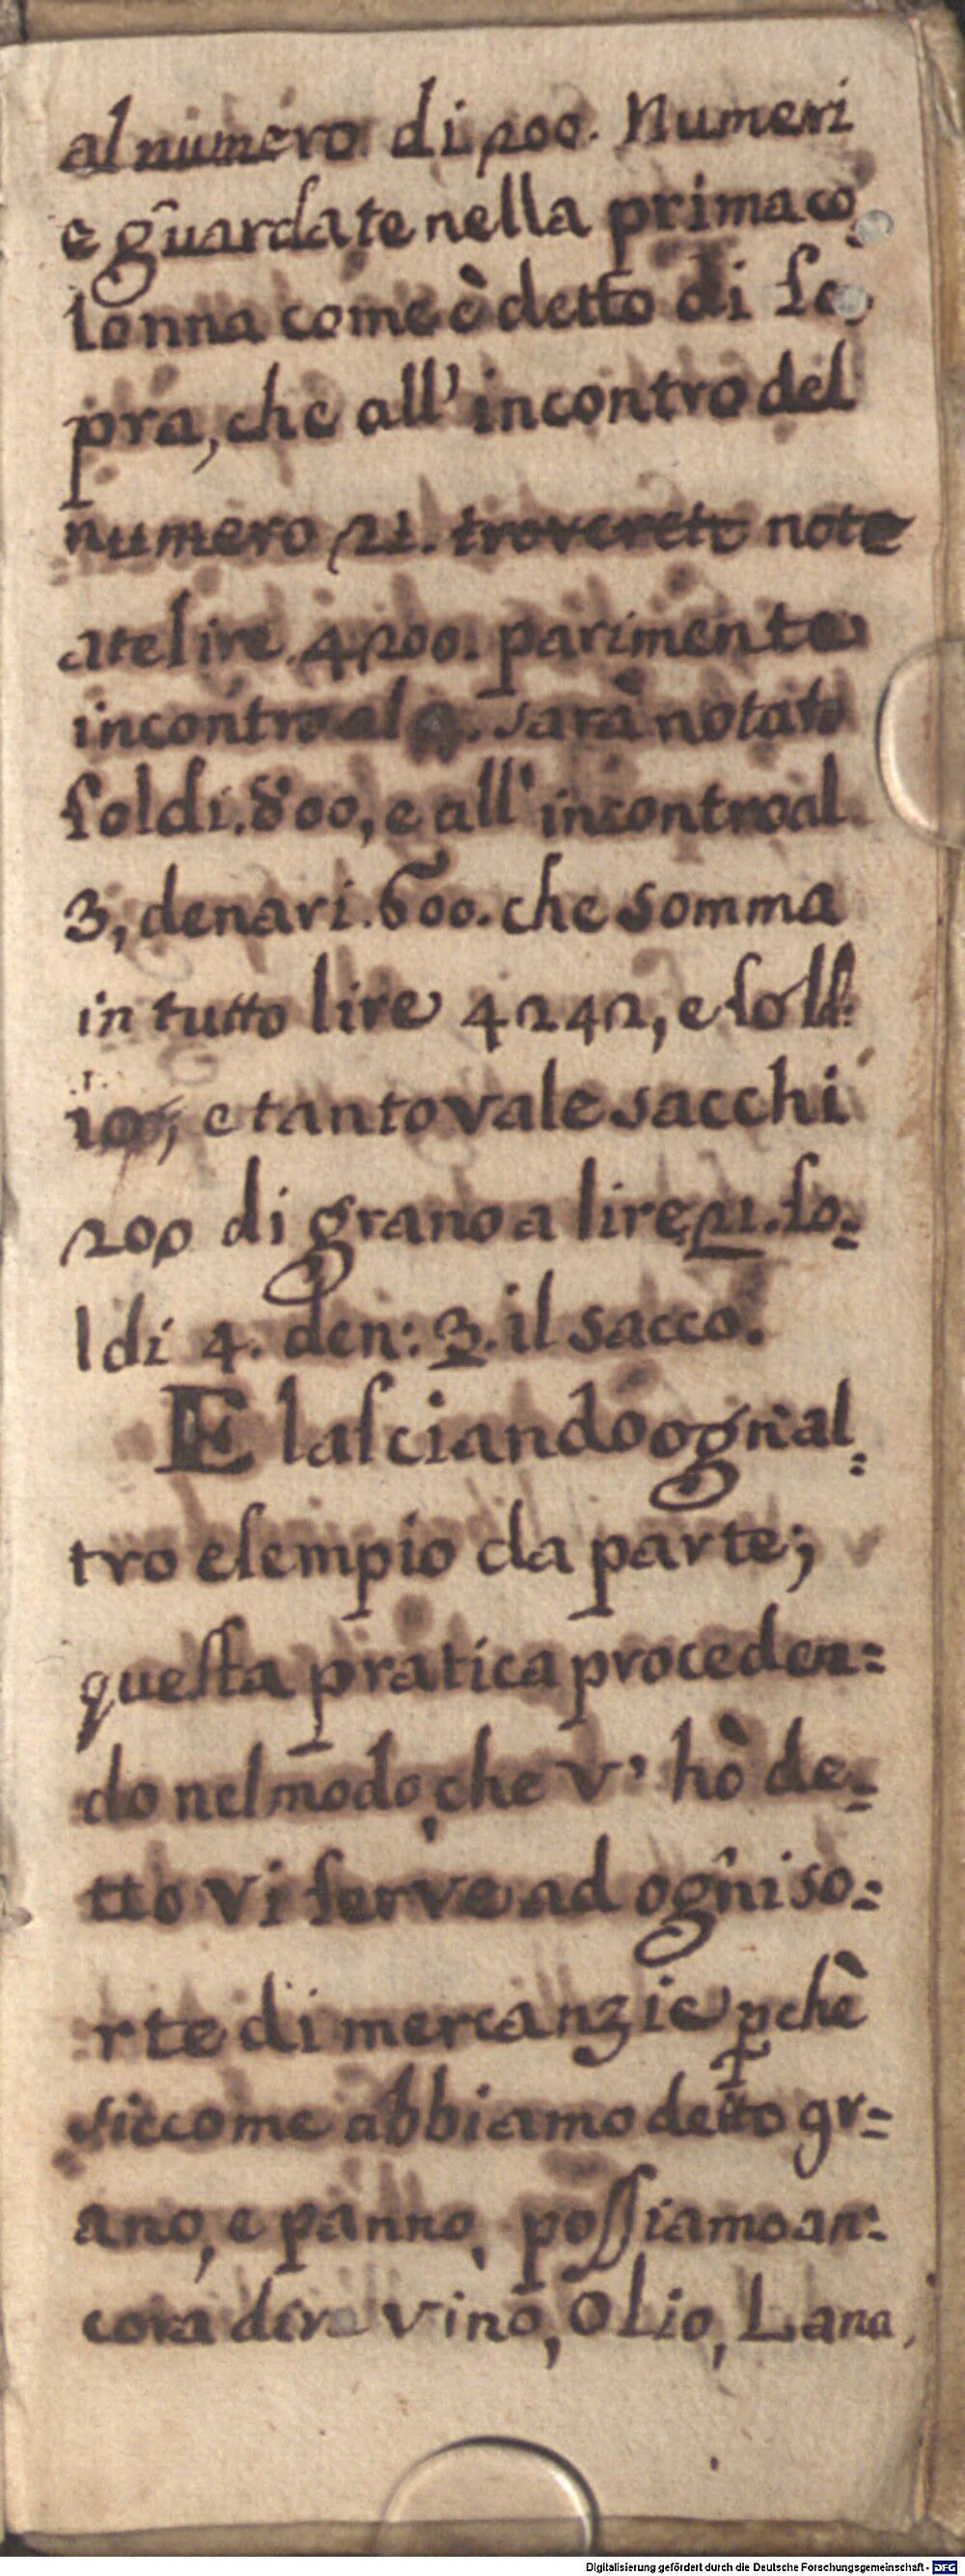 al numero di 200. Numeri
e guardate nella prima co
lonna come è detto di so
pra, che all' incontro del
numero 21. troverete note
ate lire. 4200. parimente
incontro al 4. sarà notato
soldi. 800, e all' incontro al
3, denari. 600. che somma
in tutto lire 4242, e soll:
10, e tanto vale sacchi
200 di grano a lire 21. so:
ldi 4. den: 3. il sacco.
E lasciando ogn'al:
tro esempio da parte;
questa pratica proceden:
do nel modo, che v' hò de:
tto vi serve ad ogni so:
rte di mercanzie pchè
siccome abbiamo detto gr=
ano, e panno, possiamo an:
cora dire vino, Olio, Lana,
Digitalisierung gefördert durch die Deutsche Forschungsgemeinschaft - DFG